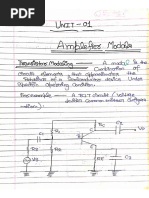 UNIT-01
Amplifier Models
Transistors Modeling - A model is the
Combination of
Circuit elements that approximates the
behaviour of a Semiconductor device Under
Specific operating Condition.
For example - A BJT circuit ( Voltage
divider Common emitter Configura
-tion).
Vcc
R1
Rc
C2
Vo
C1
Rs
R2
Vs